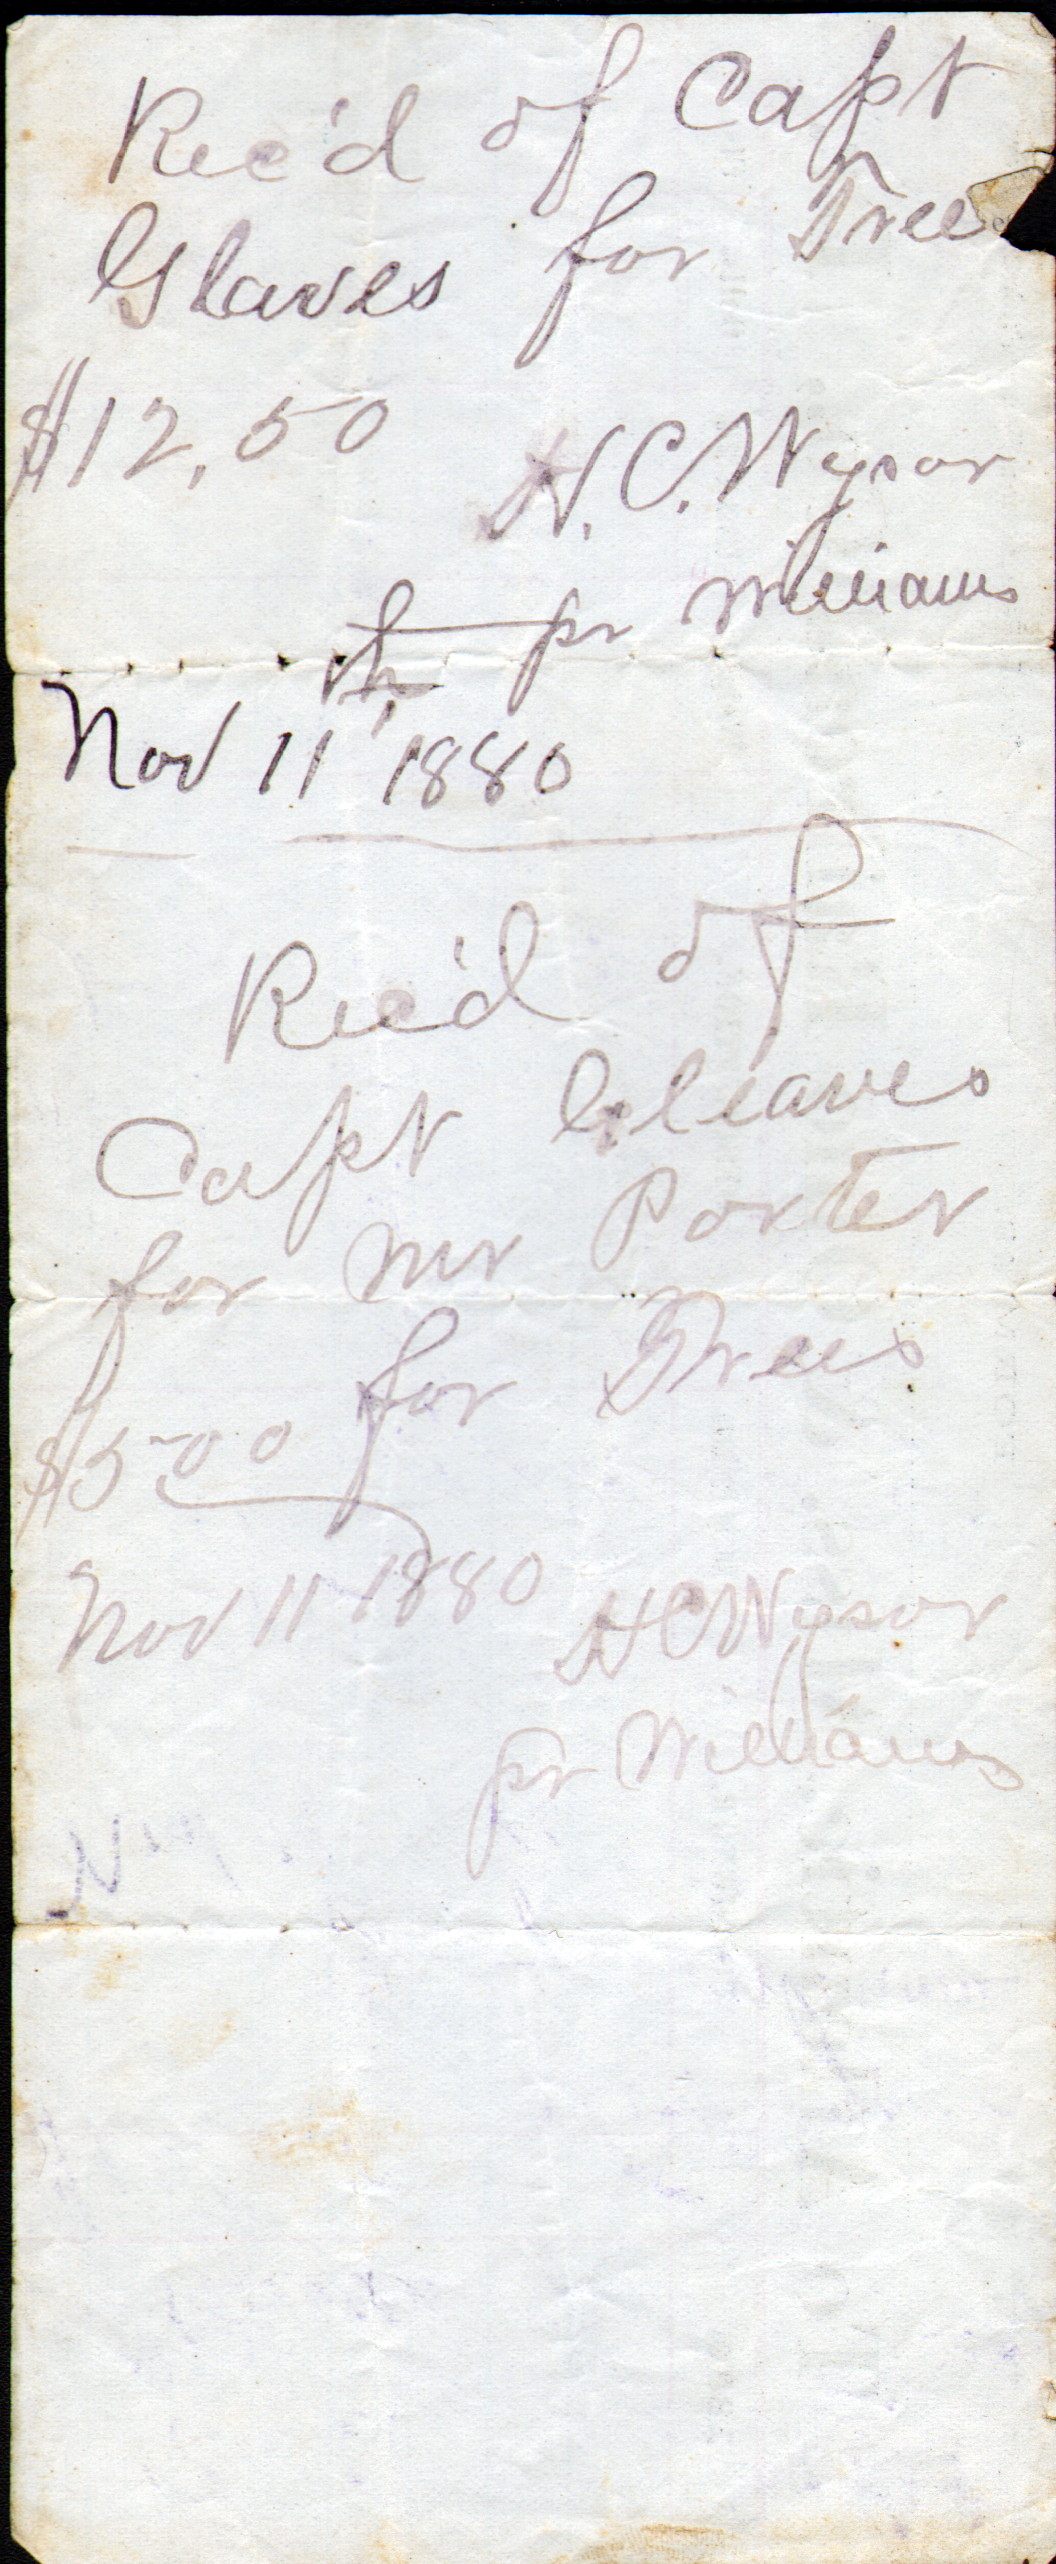 Rec'd of Capt
Glaves for Trees
$12,50
H.C. Wysor
pr Williams
Nov 11th, 1880
Rec'd of
Capt Gleaves
for Mr Porter
for Trees
$5 00
Nov 11 1880 HC Wysor
pr Williams